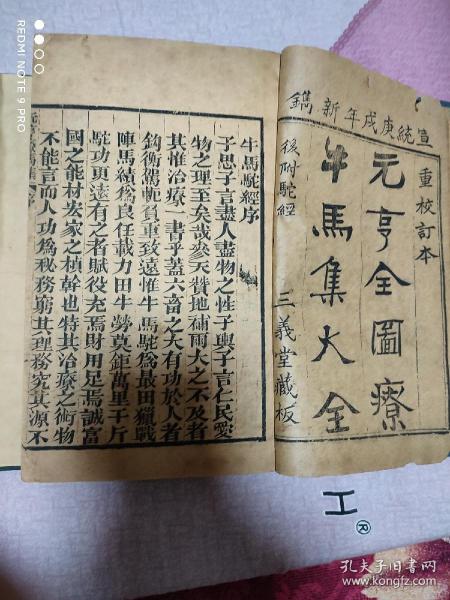 宣統庚戌年新鐫
重校訂本
元亨全圖療
牛馬集大全
後附駝經
三義堂藏板
牛馬駝經序
子思子言盡人盡物之性子輿子言仁民愛
物之理至矣哉參天贊地補爾大之不及者
其惟治療一書乎蓋六畜之大有功於人者
鈎衡鞴軛負重致遠惟牛馬駝爲最田獵戰
陣馬績爲良任載力田牛勞莫鉅萬里千斤
駝功更遠有之者賦役充焉財用足焉誠富
國之能材宏家之楨幹也特其治療之術物
不能言而人功爲秘務窮其理務究其源不
REDMI NOTE 8 PRO
AI QUAD CAMERA
工®
孔夫子旧书网
www.kongfz.com